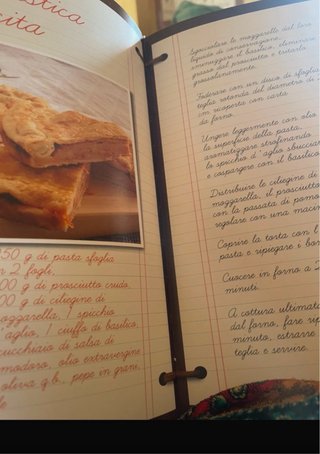 stica
cita
50 g di pasta sfoglia
n 2 fogli,
00 g di prosciutto crudo,
00 g di ciliegine di
mozzarella, 1 spicchio
aglio, 1 ciuffo di basilico,
cucchiaio di salsa di
omodoro, olio extravergine
oliva q.b., pepe in grani,
le
Sgocciolare le mozzarelle dal loro
liquido di conservazione,
sminuzzare il basilico, eliminare
grasso dal prosciutto e tritarlo
grossolanamente.
Foderare con un disco di sfoglia
teglia rotonda del diametro di
cm ricoperta con carta
da forno.
Ungere leggermente con olio
la superficie della pasta,
aromatizzare strofinando
lo spicchio d'aglio sbucciato
e cospargere con il basilico
Distribuire le ciliegine di
mozzarella, il prosciutto
con la passata di pomo
regolare con una macin
Coprire la torta con l
pasta e ripiegare i bor
Cuocere in forno a 2
minuti.
A cottura ultimata
dal forno, fare rip
minuto, estrarre
teglia e servire.